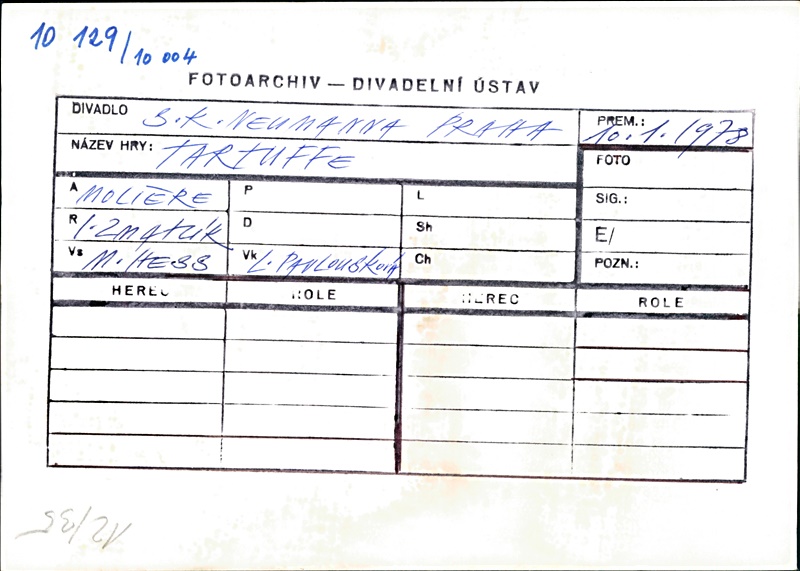 10 129/10 004
FOTOARCHIV — DIVADELNÍ ÚSTAV
DIVADLO S.K. NEUMANNA PRAHA
PREM.: 10.1.1978
NÁZEV HRY: TARTUFFE
FOTO
A MOLIÈRE
P
L
SIG.:
R I. ZMATLÍK
D
Sh
E/
Vs M. HESS
Vk L. PAVLOUSKOVÁ
Ch
POZN.:
HEREC ROLE HEREC ROLE
12/35